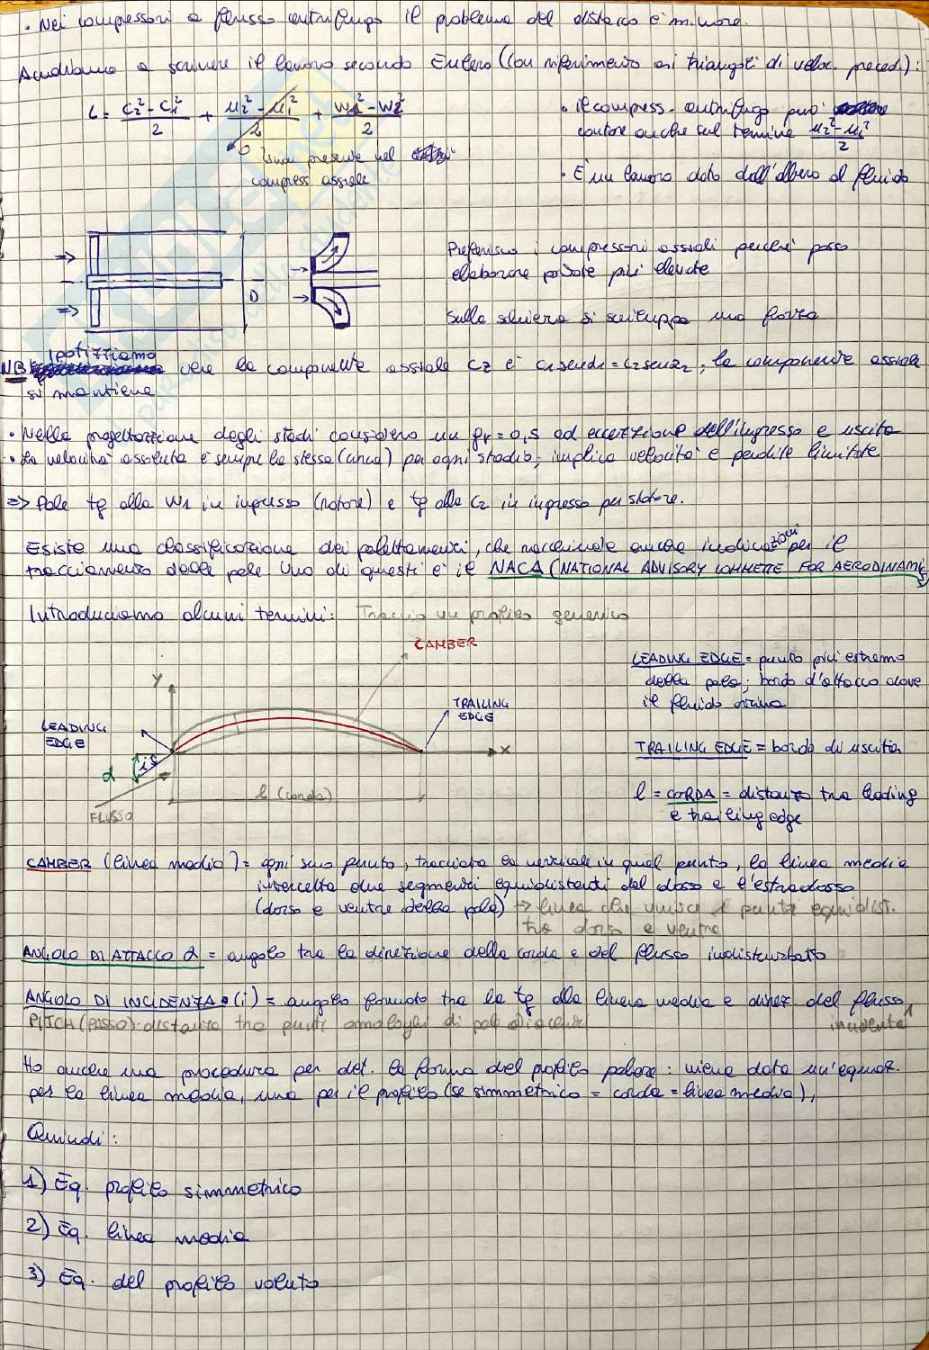 • Nei compressori a flusso centrifugo il problema del distacco è minore.
Andiamo a scrivere il lavoro secondo Eulero (con riferimento ai triangoli di veloc. preced.):
L = (c₂² - c₁²)/2 + (u₂² - u₁²)/2 + (w₁² - w₂²)/2
0
presente nel
compress assiale
• il compress. centrifugo può
contare anche sul termine (u₂² - u₁²)/2
• È un lavoro dato dall'albero al fluido
D
Preferisco i compressori assiali perché posso
elaborare portate più elevate
Sulla schiera si sviluppa una forza
NB ipotizziamo
vere la componente assiale cz è c₁senα₁ = c₂senα₂, la componente assiale
si mantiene
• Nella progettazione degli stadi considero un ρr = 0,5 ad eccezione dell'ingresso e uscita
• La velocità assoluta è sempre la stessa (circa) per ogni stadio; implica velocità e perdite limitate
=> Pale tg alla w₁ in ingresso (rotore) e tg alla c₂ in ingresso per statore.
Esiste una classificazione dei palettamenti, che racchiude anche indicazioni per il
tracciamento delle pale. Uno di questi è il NACA (NATIONAL ADVISORY COMMETTE FOR AERODINAMICS)
Introduciamo alcuni termini: Traccio un profilo generico
CAMBER
y
LEADING
EDGE
TRAILING
EDGE
x
α
i
l (corda)
FLUSSO
LEADING EDGE = punto più estremo
della pala; bordo d'attacco dove
il fluido arriva
TRAILING EDGE = bordo di uscita
l = CORDA = distanza tra leading
e trailing edge
CAMBER (linea media) = ogni suo punto, tracciata la verticale in quel punto, la linea media
intercetta due segmenti equidistanti dal dosso e l'estradosso
(dorso e ventre della pala) → linea che unisce i punti equidist.
tra dorso e ventre
ANGOLO DI ATTACCO α = angolo tra la direzione della corda e del flusso indisturbato
ANGOLO DI INCIDENZA (i) = angolo formato tra la tg alla linea media e direz. del flusso
incidente
PITCH (PASSO): distanza tra punti omologhi di pale adiacenti
Ho anche una procedura per det. la forma del profilo palare: viene data un'equaz.
per la linea media, una per il profilo (se simmetrico = corda = linea media),
Quindi:
1) Eq. profilo simmetrico
2) Eq. linea media
3) Eq. del profilo voluto